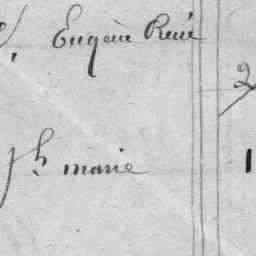 Eugène René 2
Jh marie 1